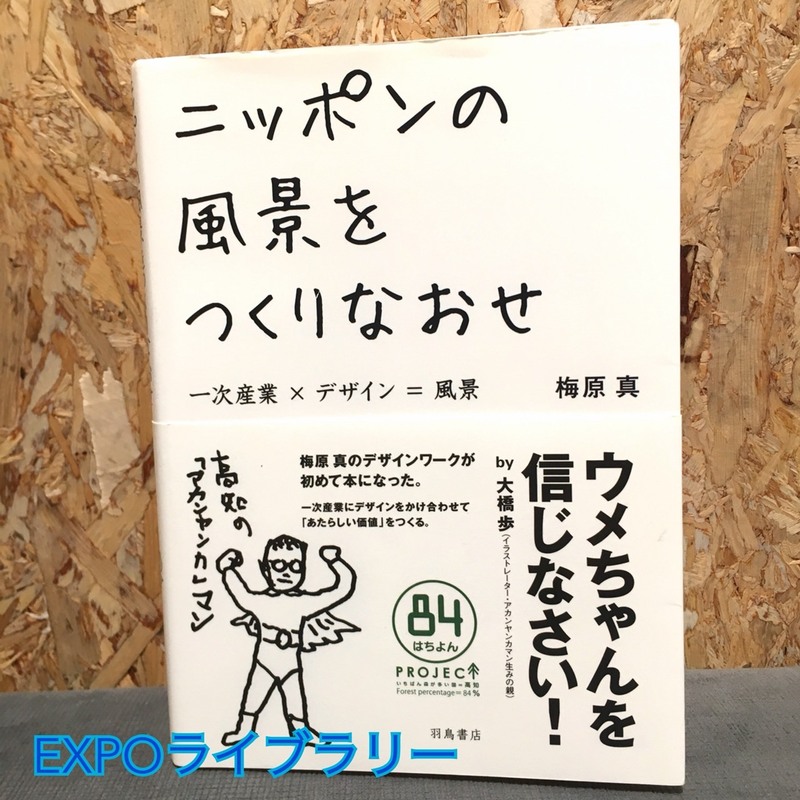 ニッポンの
風景を
つくりなおせ
一次産業 × デザイン = 風景
梅原 真
ウメちゃんを
信じなさい!
by 大橋 歩(イラストレーター・アカンヤンカマン生みの親)
梅原 真のデザインワークが
初めて本になった。
一次産業にデザインをかけ合わせて
「あたらしい価値」をつくる。
高知の
「アカンヤンカ」マン
84
はちよん
PROJECT
いちばん森が多い国=高知
Forest percentage=84%
羽鳥書店
EXPOライブラリー